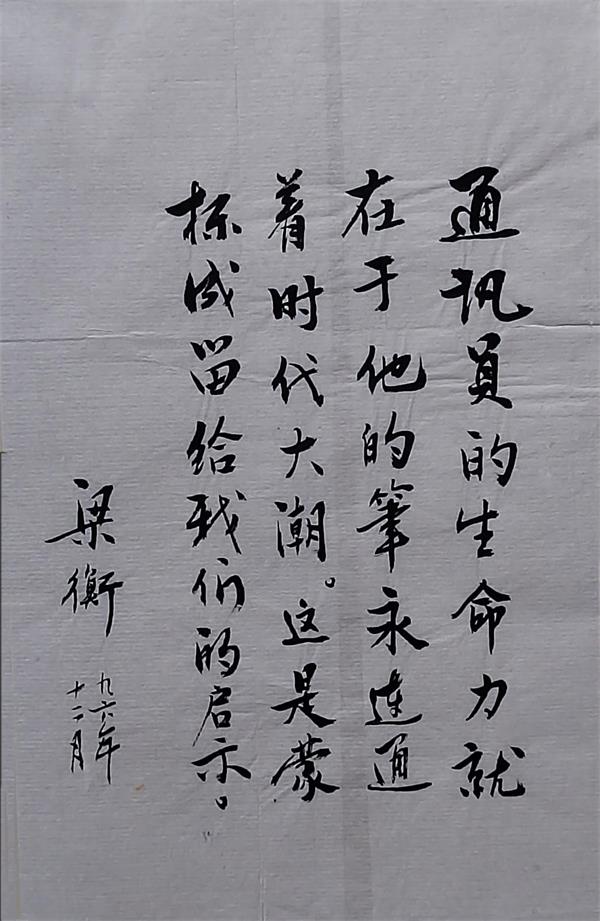 通讯员的生命力就
在于他的筆永连通
着时代大潮。这是蒙
栋成留给我们的启示。
梁衡
九六年
十二月